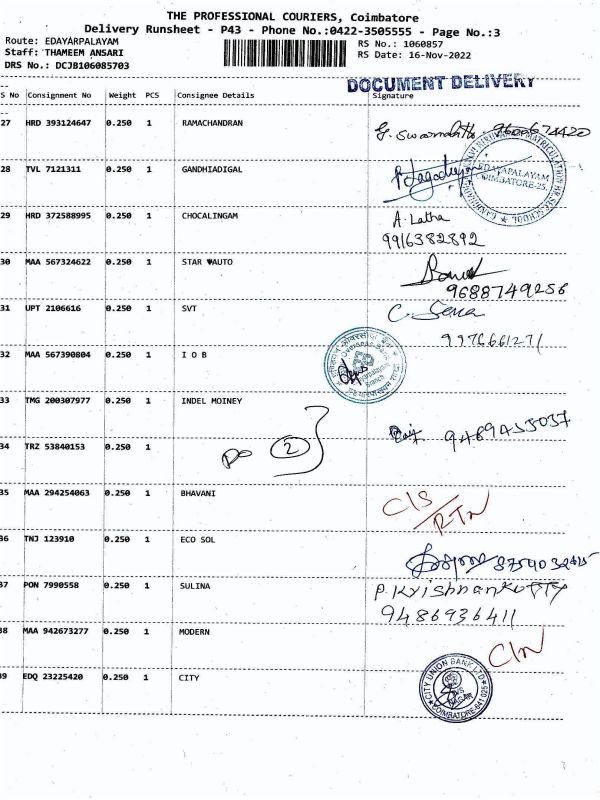 THE PROFESSIONAL COURIERS, Coimbatore
Delivery Runsheet - P43 - Phone No.:0422-3505555 - Page No.:3
Route: EDAYARPALAYAM RS No.: 1060857
Staff: THAMEEM ANSARI RS Date: 16-Nov-2022
DRS No.: DCJB106085703
DOCUMENT DELIVERY
S No Consignment No Weight PCS Consignee Details Signature
27 HRD 393124647 0.250 1 RAMACHANDRAN
28 TVL 7121311 0.250 1 GANDHIADIGAL
EDAYAPALAYAM
COIMBATORE-25.
29 HRD 372588995 0.250 1 CHOCALINGAM A. Latha
9916382892
30 MAA 567324622 0.250 1 STAR AUTO
9688749256
31 UPT 2106616 0.250 1 SVT
32 MAA 567390804 0.250 1 I O B
33 TMG 200307977 0.250 1 INDEL MOINEY
34 TRZ 53840153 0.250 1 2
35 MAA 294254063 0.250 1 BHAVANI C/S
RTN
36 TNJ 123910 0.250 1 ECO SOL
37 PON 7990558 0.250 1 SULINA P. Krishnankutty
9486936411
38 MAA 942673277 0.250 1 MODERN C/N
39 EDQ 23225420 0.250 1 CITY CITY UNION BANK LTD
COIMBATORE-641 025